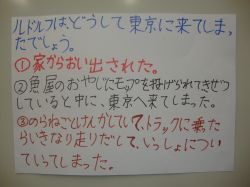 ルドルフは、どうして東京に来てしまっ
たでしょう。
①家からおい出された。
②魚屋のおやじにモップを投げられてきぜつ
していると中に、東京へ来てしまった。
③のらねことけんかしていて、トラックに乗った
らいきなり走りだして、いっしょについ
ていってしまった。